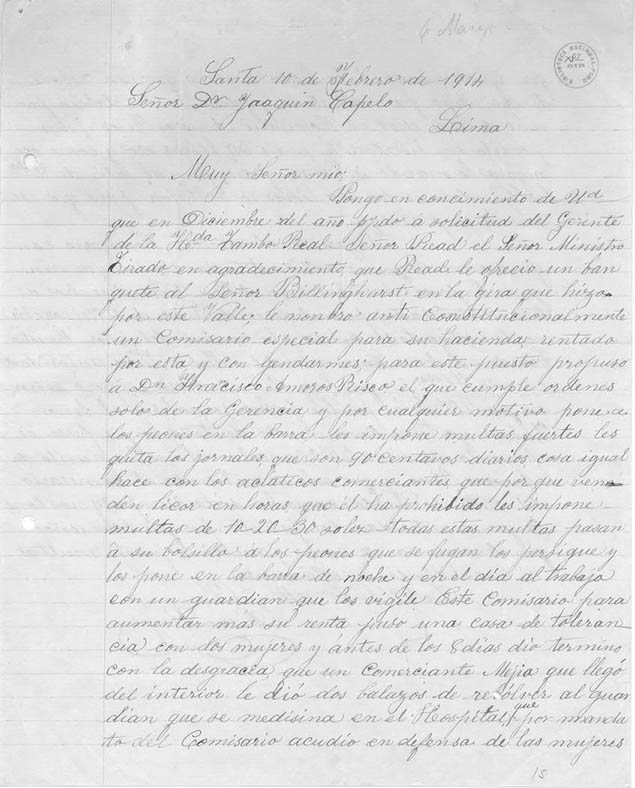 6 Marzo
BIBLIOTECA NACIONAL
Santa 10 de Febrero de 1914
Señor Dr Joaquin Capelo
Lima
Muy Señor mio;
Pongo en concimiento de Ud
que en Diciembre del año ppdo a solicitud del Gerente
de la Hda Tambo Real Señor Read el Señor Ministro
Tirado en agradecimiento, que Read le ofrecio un ban
quete al Señor Billinghurst en la gira que hizo
por este Valle; le nombro anti Constitucionalmente
un Comisario especial para su hacienda, rentado
por esta y con gendarmes; para este puesto propuso
a Dn Francisco Amoros Risco el que cumple ordenes
solos de la Gerencia y por cualquier motivo pone a
los peones en la barra les impone multas fuertes les
quita los jornales, que son 90 centavos diarios, cosa igual
hace con los aciaticos comerciantes que por que ven
den licor en horas que él ha prohibido les impone
multas de 10-20-30 soles todas estas multas pasan
á su bolsillo á los peones que se fugan los persigue y
los pone en la barra de noche y en el día al trabajo
con un guardian que los vigile Este Comisario para
aumentar mas su renta puso una casa de toleran
cia con dos mujeres y ántes de los 8 dias dio termino
con la desgracia, que un Comerciante Mejia que llegó
del interior le dió dos balazos de revólver al guar
dian que se medisina en el Hospital, que por manda
to del Comisario acudio en defensa de las mujeres
15